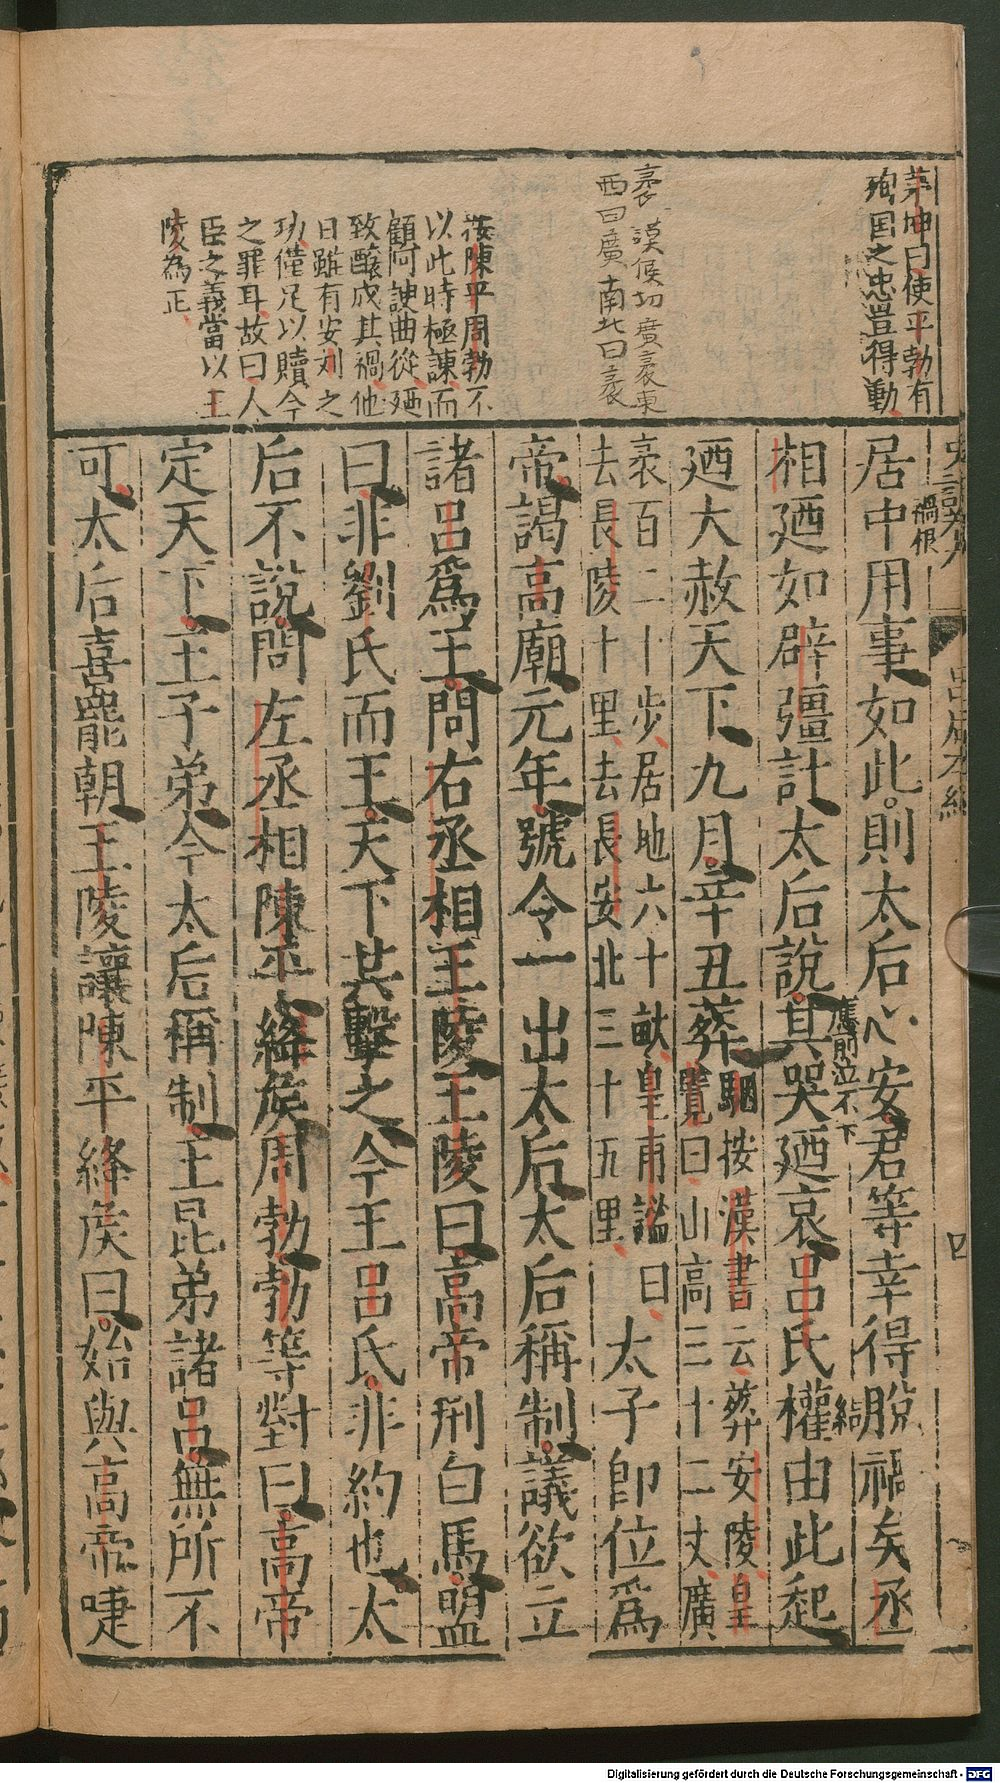 茅坤曰使平勃有
殉国之忠豈得動
袤謨候切廣袤東
西曰廣南北曰袤
按陳平周勃不
以此時極諫而
顧阿諛曲從廼
致釀成其禍他
日雖有安刘之
功僅足以贖今
之罪耳故曰人
臣之義當以王
陵為正
四
禍根
居中用事如此則太后心安君等幸得脫禍矣丞
相廼如辟彊計太后說其哭廼哀呂氏權由此起
應前泣不下
結
廼大赦天下九月辛丑葬
駰按漢書云葬安陵皇
覽曰山高三十二丈廣
袤百二十步居地六十畝皇甫謐曰
去長陵十里去長安北三十五里
太子即位爲
帝謁高廟元年號令一出太后太后稱制議欲立
諸呂爲王問右丞相王陵王陵曰高帝刑白馬盟
曰非劉氏而王天下其擊之今王呂氏非約也太
后不說問左丞相陳平絳侯周勃勃等對曰高帝
定天下王子弟今太后稱制王昆弟諸呂無所不
可太后喜罷朝王陵讓陳平絳侯曰始與高帝啑
Digitalisierung gefördert durch die Deutsche Forschungsgemeinschaft - DFG